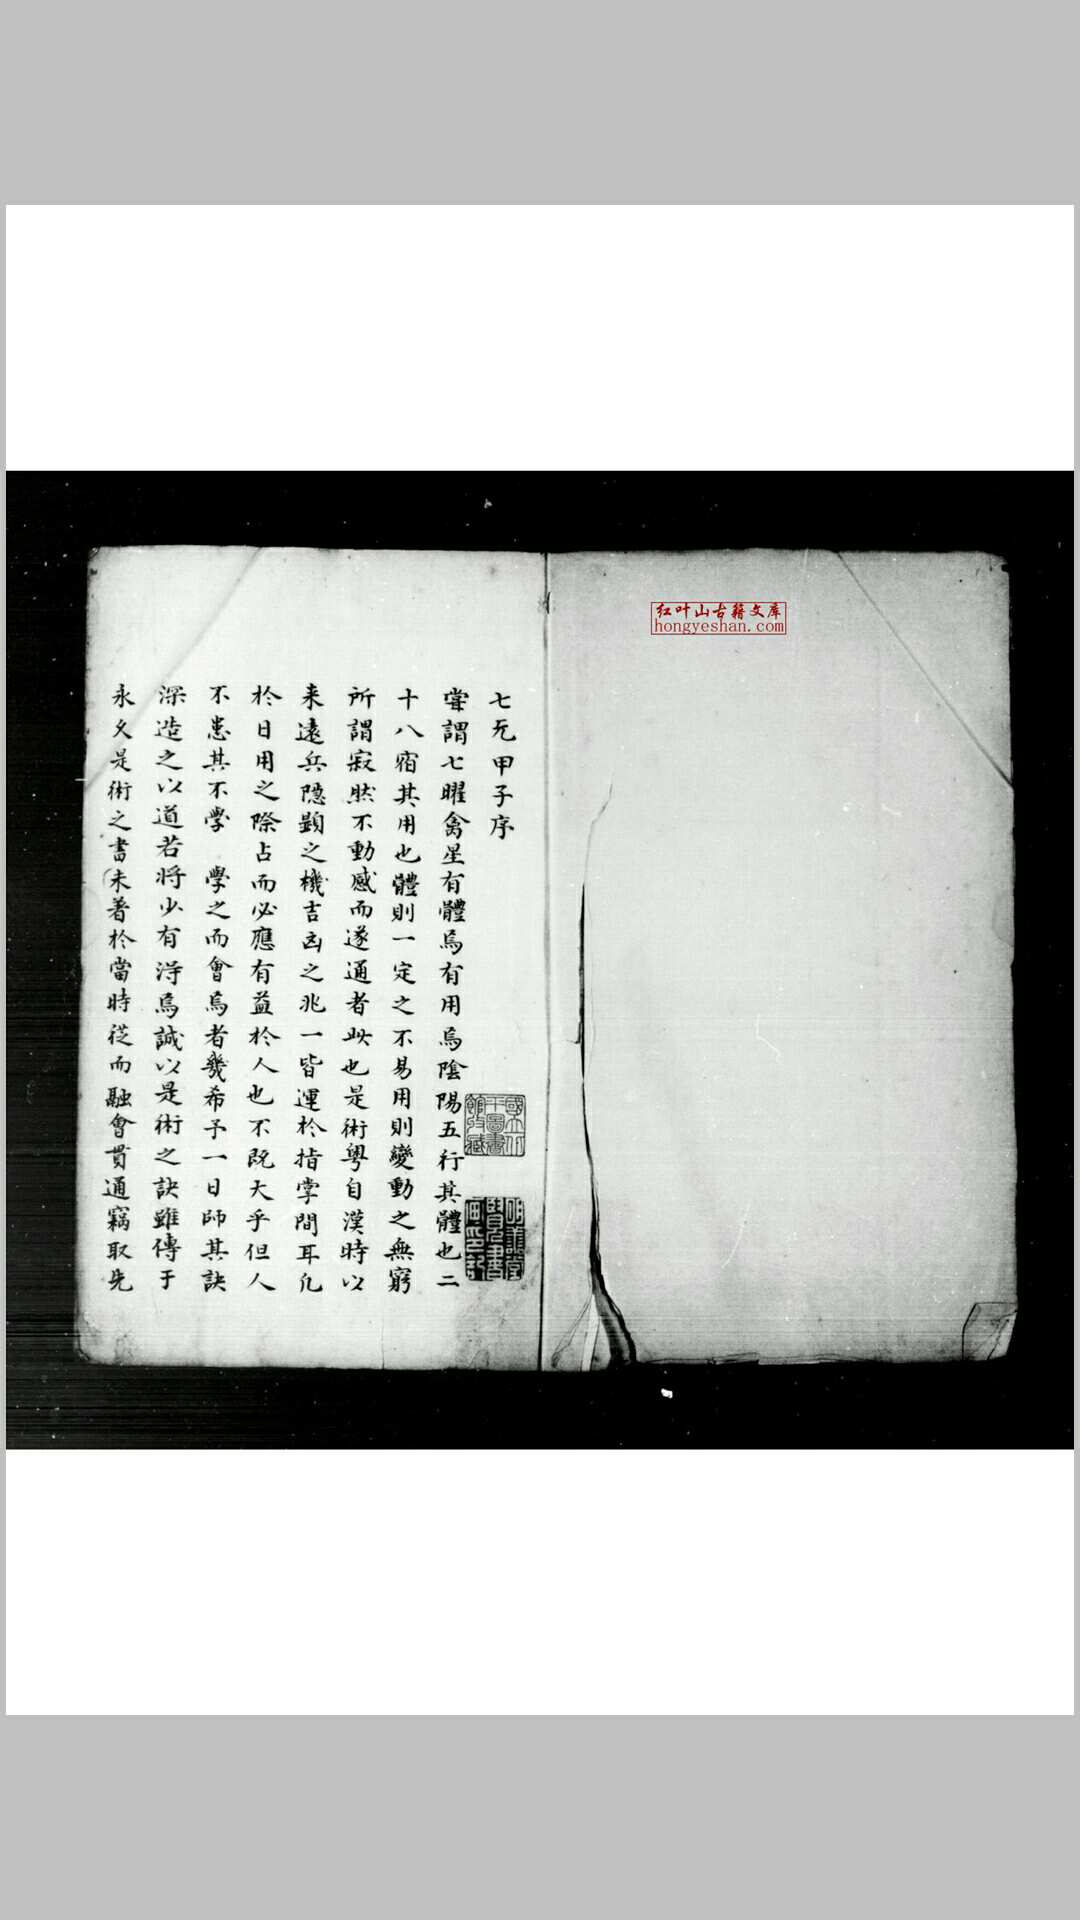 七元甲子序
嘗謂七曜禽星有體焉有用焉陰陽五行其體也二
十八宿其用也體則一定之不易用則變動之無窮
所謂寂然不動感而遂通者此也是術粵自漢時以
来遠矣隱顕之機吉凶之兆一皆運於指掌間耳凡
於日用之際占而必應有益於人也不既大乎但人
不患其不學 學之而會焉者幾希予一日師其訣
深造之以道若將少有淂焉誠以是術之訣雖傳于
永久是術之書未著於當時從而融會貫通竊取先
國立北
平圖書
館收藏
红叶山古籍文库
hongyeshan.com